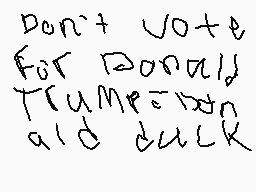 Don't vote
For Donald
Trump = Don
ald duck